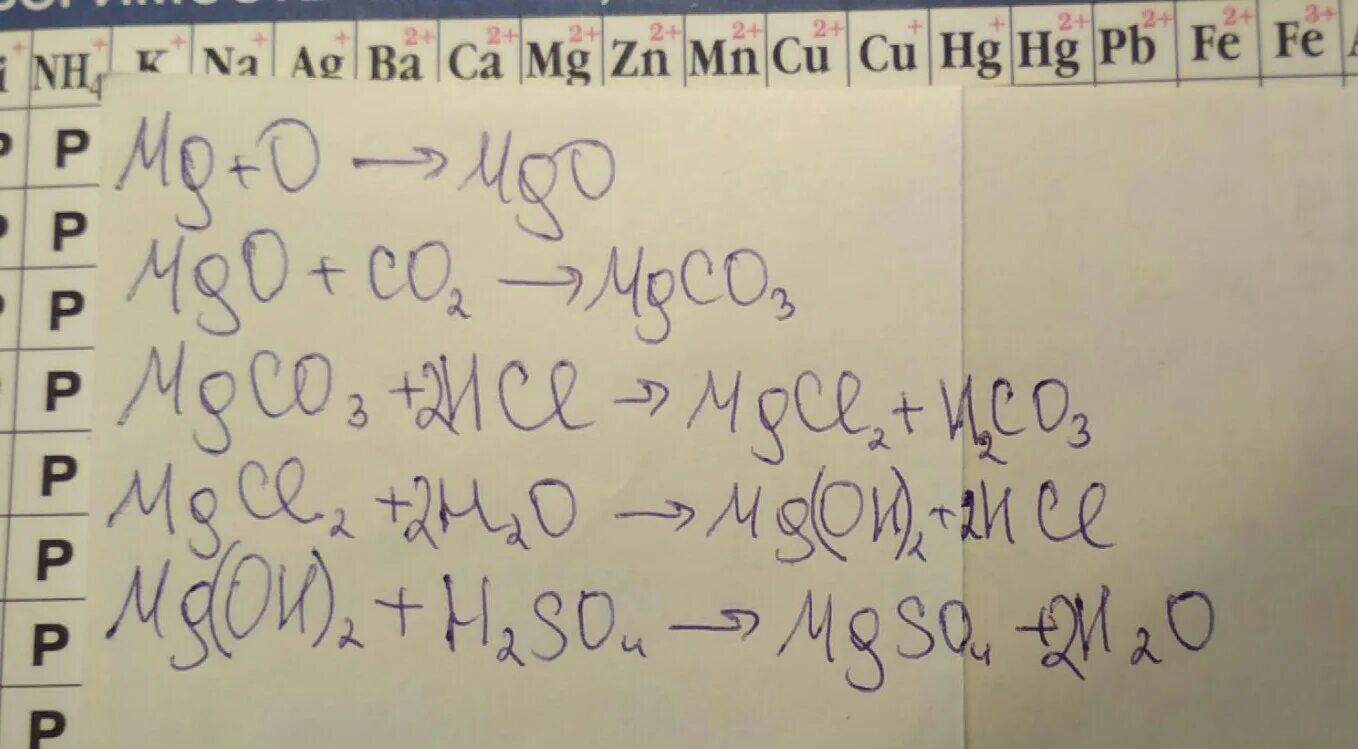 NH₄⁺ K⁺ Na⁺ Ag⁺ Ba²⁺ Ca²⁺ Mg²⁺ Zn²⁺ Mn²⁺ Cu²⁺ Cu⁺ Hg⁺ Hg²⁺ Pb²⁺ Fe²⁺ Fe³⁺
P
Mg + O → MgO
P
MgO + CO₂ → MgCO₃
P
P
MgCO₃ + 2HCl → MgCl₂ + H₂CO₃
P
MgCl₂ + 2H₂O → Mg(OH)₂ + 2HCl
P
Mg(OH)₂ + H₂SO₄ → MgSO₄ + 2H₂O
P
P